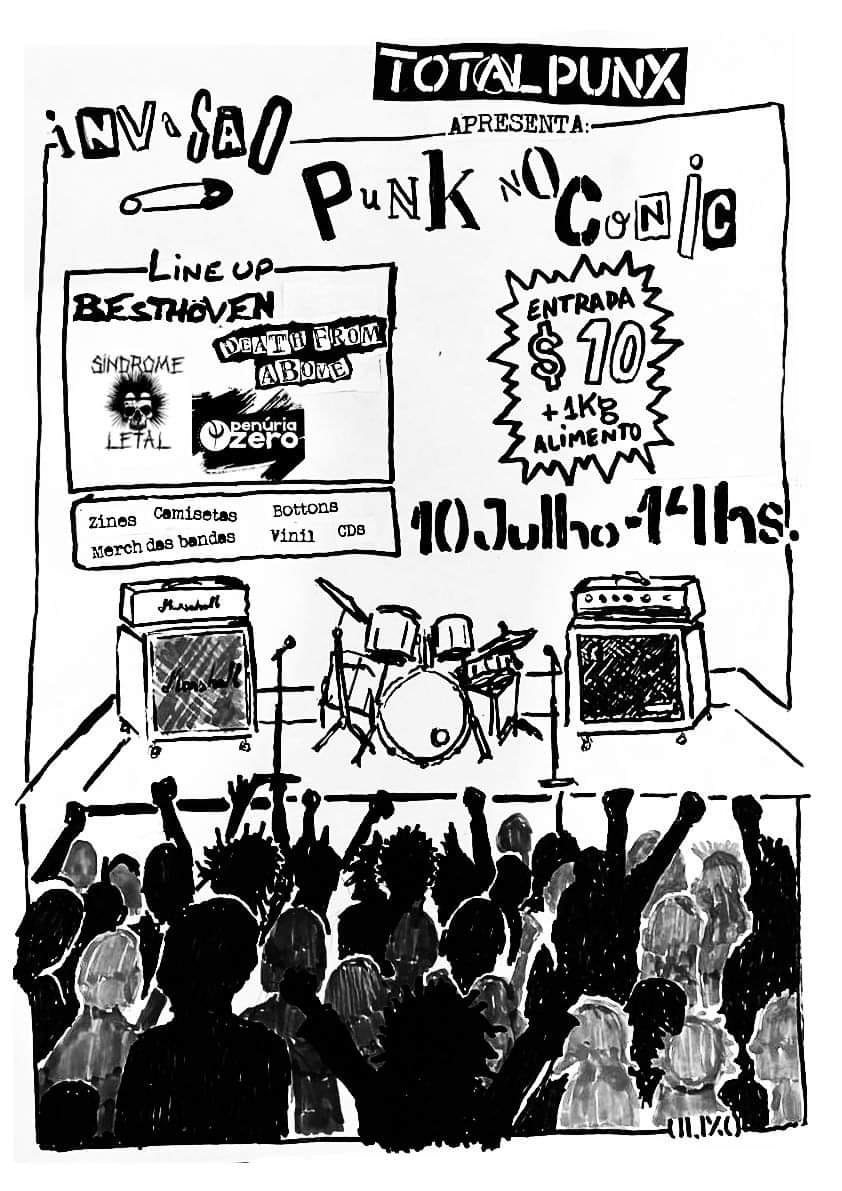 TOTAL PUNX
APRESENTA:
iNVaSÃO
PuNK NO CoNiC
LiNE UP
BESTHÖVEN
DEATH FROM
ABOVE
SÍNDROME
LETAL
penúria
zero
ENTRADA
$ 10
+ 1Kg
ALiMENTO
Zines Camisetas Bottons
Merch das bandas Vinil CDs
10 Julho - 14hs.
Marshall
Marshall